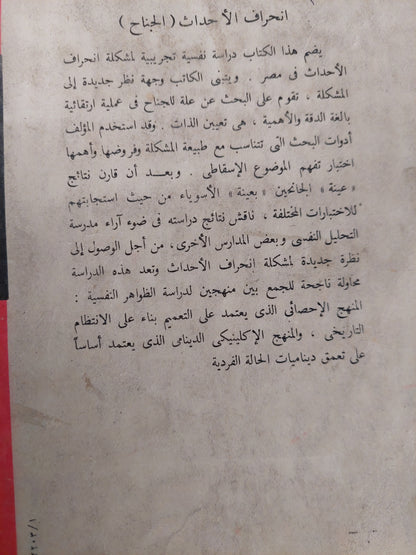 انحراف الأحداث ( الجناح )
يضم هذا الكتاب دراسة نفسية تجريبية لمشكلة انحراف
الأحداث فى مصر . ويتبنى الكاتب وجهة نظر جديدة إلى
المشكلة ، تقوم على البحث عن علة للجناح فى عملية ارتقائية
بالغة الدقة والأهمية ، هى تعيين الذات . وقد استخدم المؤلف
أدوات البحث التى تتناسب مع طبيعة المشكلة وفروضها وأهمها
اختبار تفهم الموضوع الإسقاطى . وبعــد أن قارن نتائج
« عينة » الجانحين « بعينة » الأسوياء من حيث استجابتهم
للاختبارات المختلفة ، ناقش نتائج دراسته فى ضوء آراء مدرسة
التحليل النفسى وبعض المدارس الأخرى، من أجل الوصول إلى
نظرة جديدة لمشكلة انحراف الأحداث وتعد هذه الدراسة
محاولة ناجحة للجمع بين منهجين لدراسة الظواهر النفسية :
المنهج الإحصائى الذى يعتمد على التعميم بناء على الانتظام
التاريخى ، والمنهج الإكلينيكى الدينامى الذى يعتمد أساساً
على تعمق ديناميات الحالة الفردية